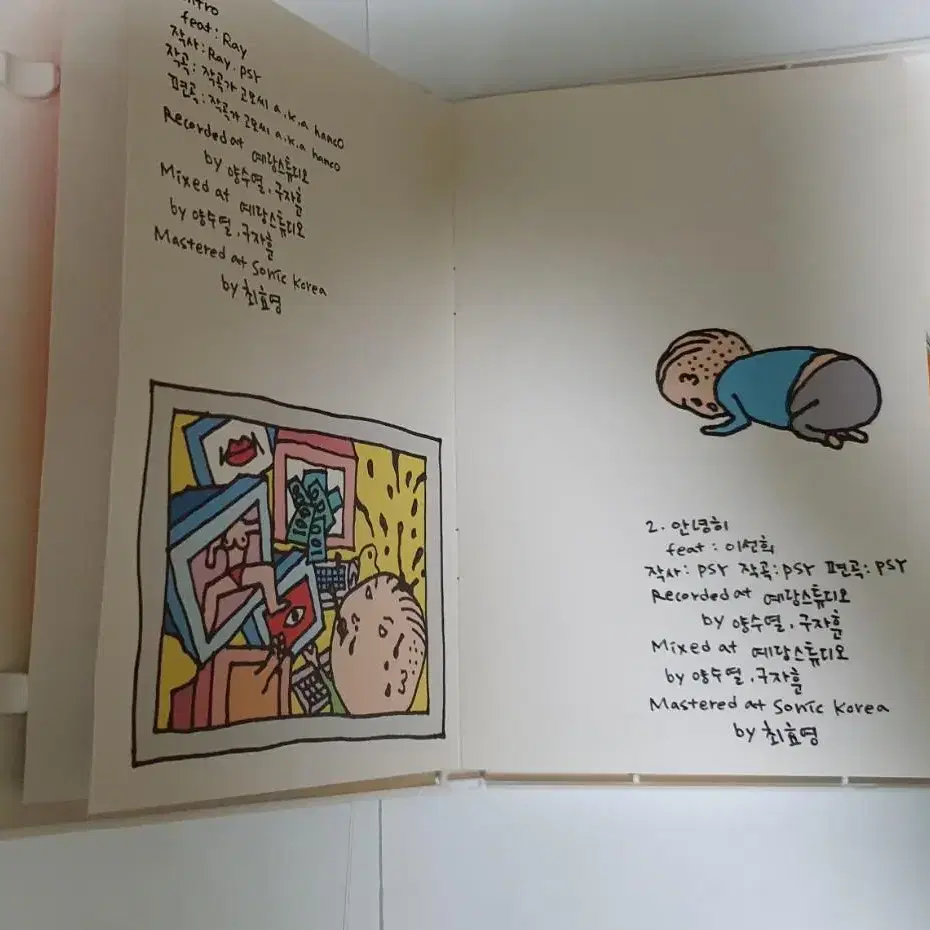 intro
feat : Ray
작사 : Ray . PSY
작곡 : 작곡가 고모씨 a.k.a hanco
편곡 : 작곡가 고모씨 a.k.a hanco
Recorded at 예당스튜디오
by 양수열 . 구자훈
Mixed at 예당스튜디오
by 양수열 . 구자훈
Mastered at Sonic Korea
by 최효영
100
100
2. 안녕히
feat : 이선희
작사 : PSY 작곡 : PSY 편곡 : PSY
Recorded at 예당스튜디오
by 양수열 . 구자훈
Mixed at 예당스튜디오
by 양수열 . 구자훈
Mastered at Sonic Korea
by 최효영